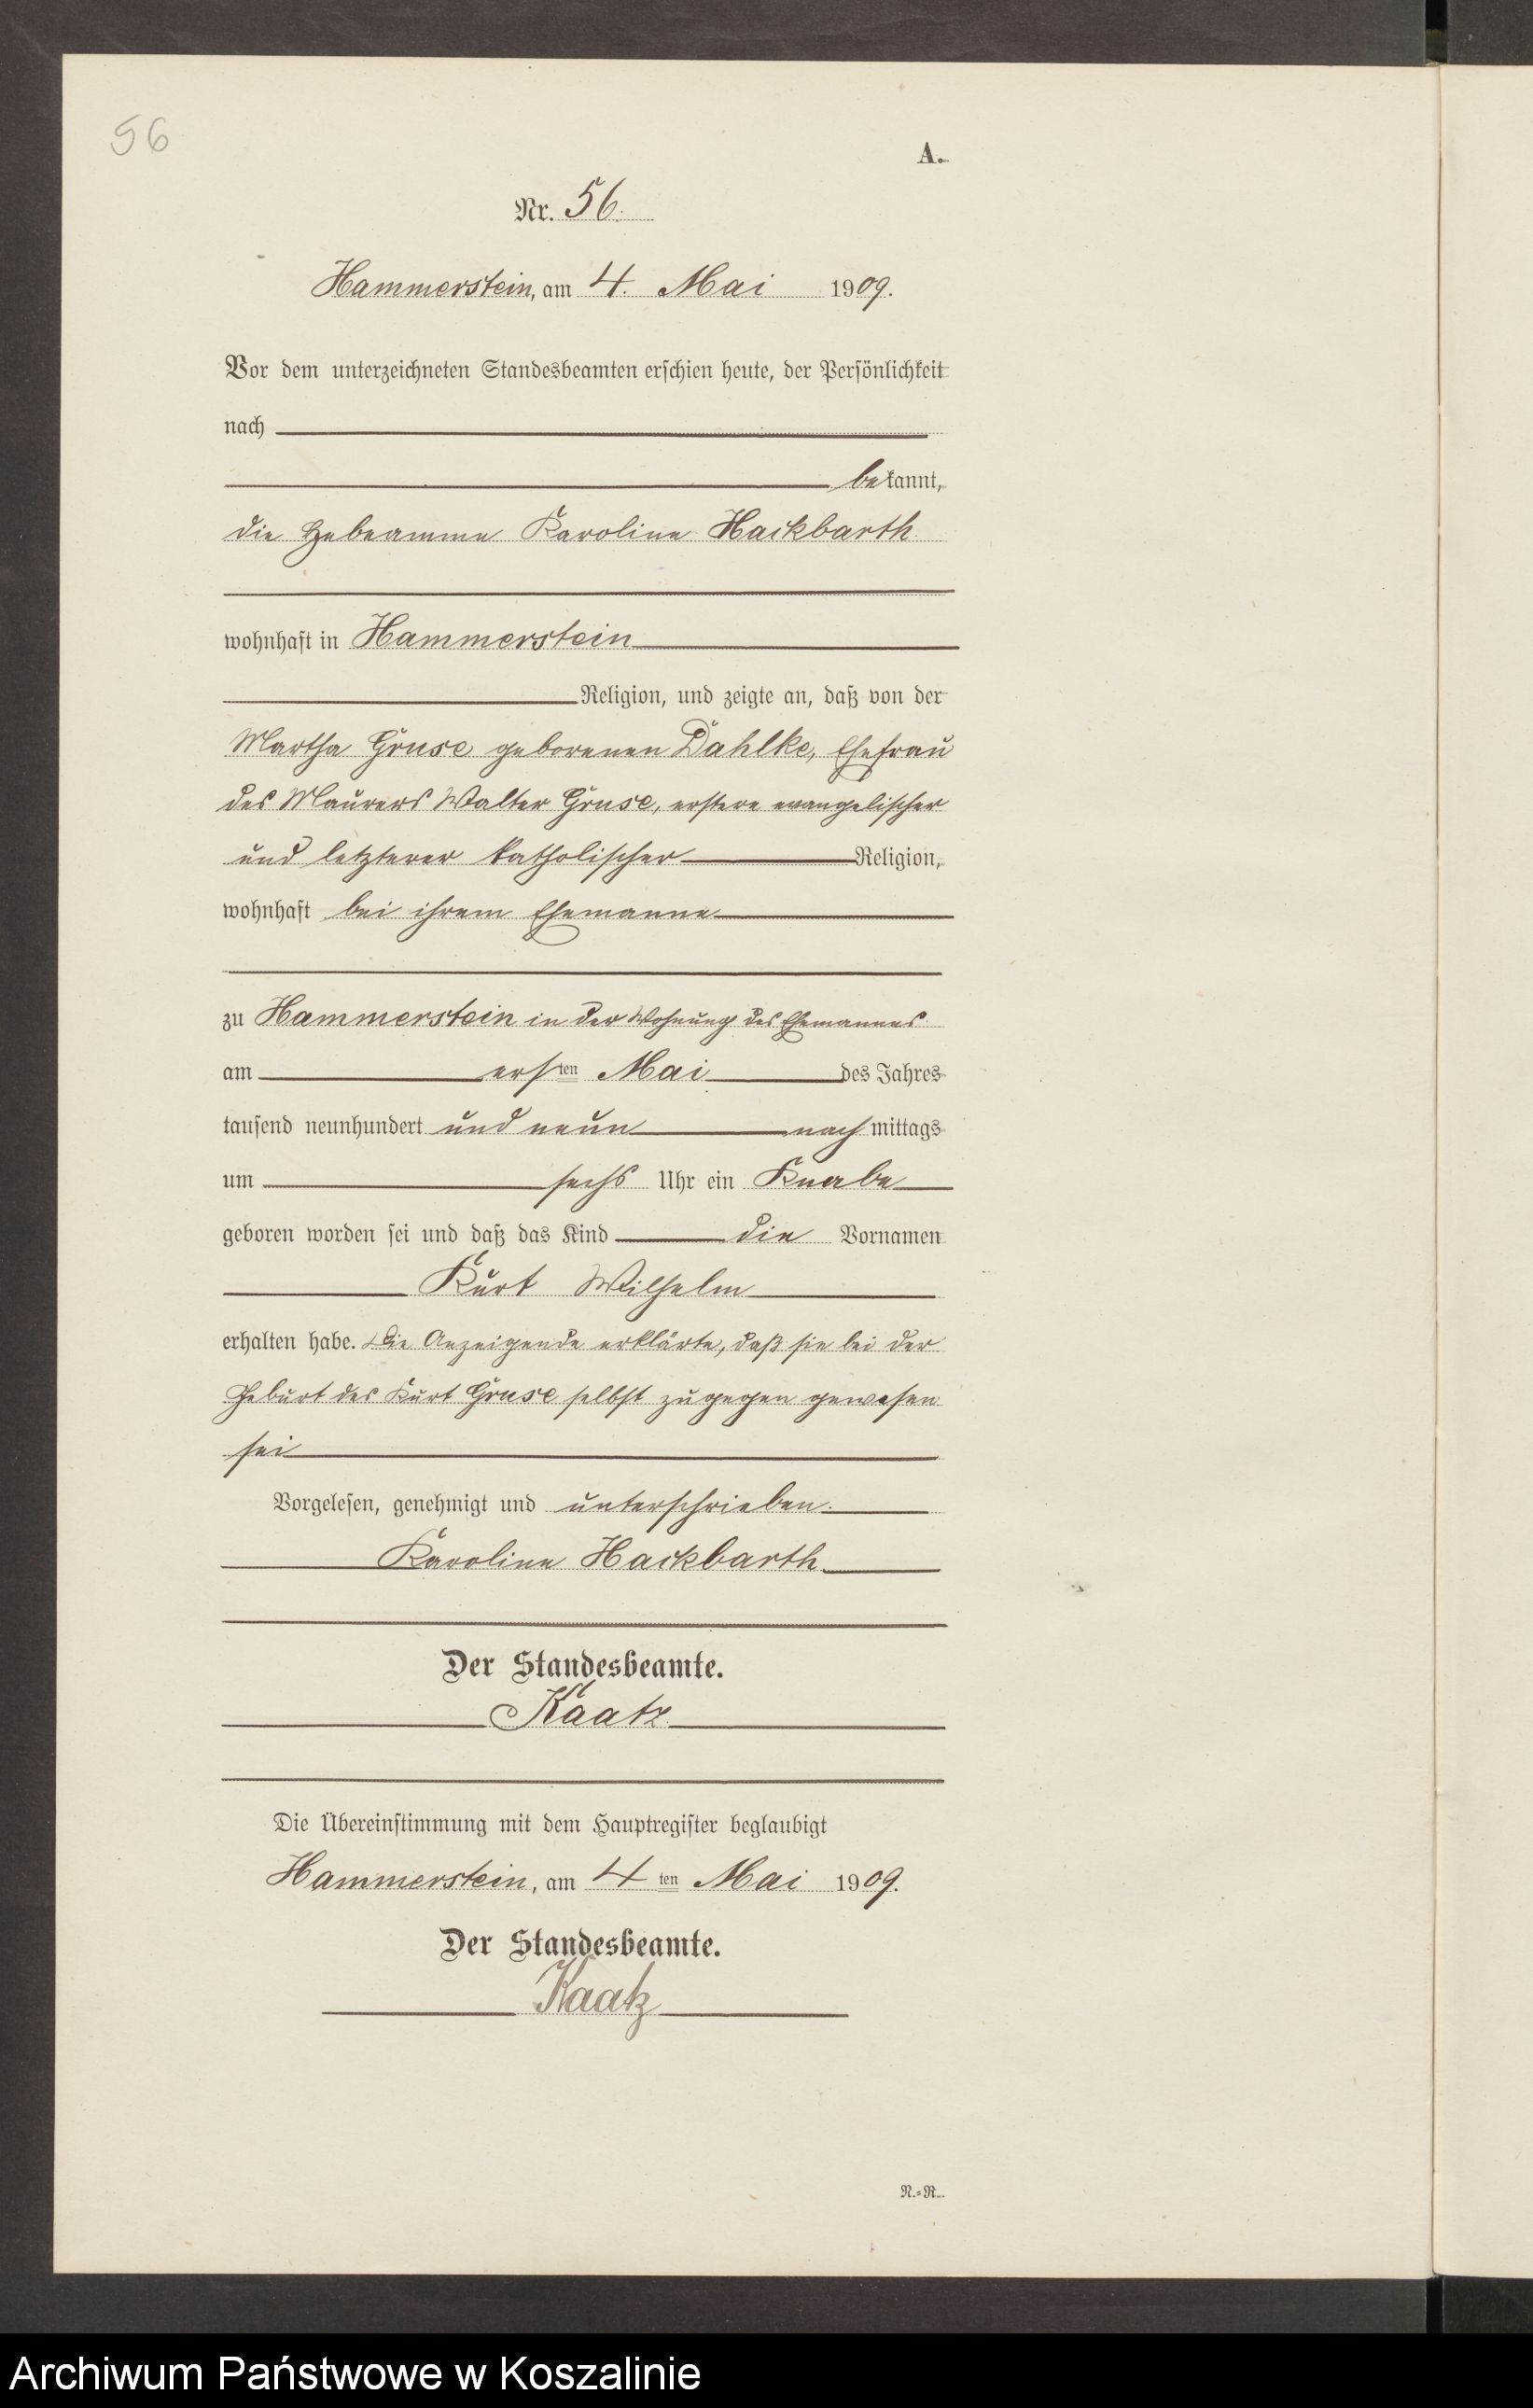 56
A.
Nr. 56.
Hammerstein, am 4. Mai 1909.
Vor dem unterzeichneten Standesbeamten erschien heute, der Persönlichkeit
nach
bekannt,
die Hebeamme Karoline Hackbarth
wohnhaft in Hammerstein
Religion, und zeigte an, daß von der
Martha Gruse geborenen Dahlke, Ehefrau
des Maurers Walter Gruse, erstere evangelischer
und letzterer katholischer Religion,
wohnhaft bei ihrem Ehemanne
zu Hammerstein in der Wohnung des Ehemannes
am ersten Mai des Jahres
tausend neunhundert und neun nachmittags
um sechs Uhr ein Knabe
geboren worden sei und daß das Kind die Vornamen
Kurt Wilhelm
erhalten habe. Die Anzeigende erklärte, daß sie bei der
Geburt des Kurt Gruse selbst zugegen gewesen
sei
Vorgelesen, genehmigt und unterschrieben.
Karoline Hackbarth
Der Standesbeamte.
Kaatz
Die Übereinstimmung mit dem Hauptregister beglaubigt
Hammerstein, am 4ten Mai 1909.
Der Standesbeamte.
Kaatz
N.=R.
Archiwum Państwowe w Koszalinie